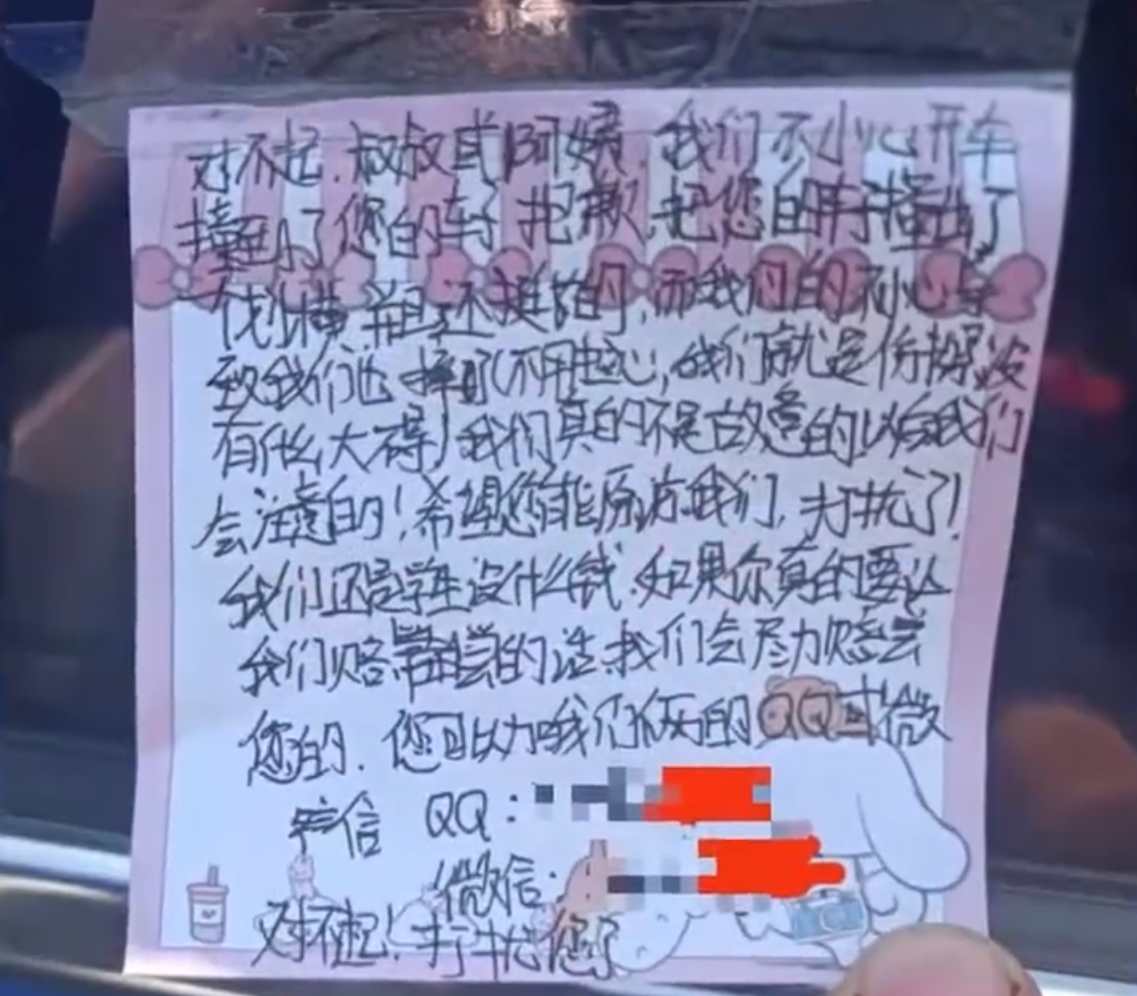 对不起，叔叔或阿姨，我们不小心开车
撞到了您的车子抱歉，把您的车子撞出了
个划横，并且还挺的，而我们的不小心导
致我们也摔了(不用担心，我们就是伤拐没
有什么大碍)我们真的不是故意的以后我们
会注意的！希望您能原谅我们，打扰了！
我们还是学生没什么钱，如果你真的要让
我们赔偿的话，我们会尽力赔尝
您的，您可以加我们俩的QQ或微
信 QQ：
微信：
对不起！打扰您了